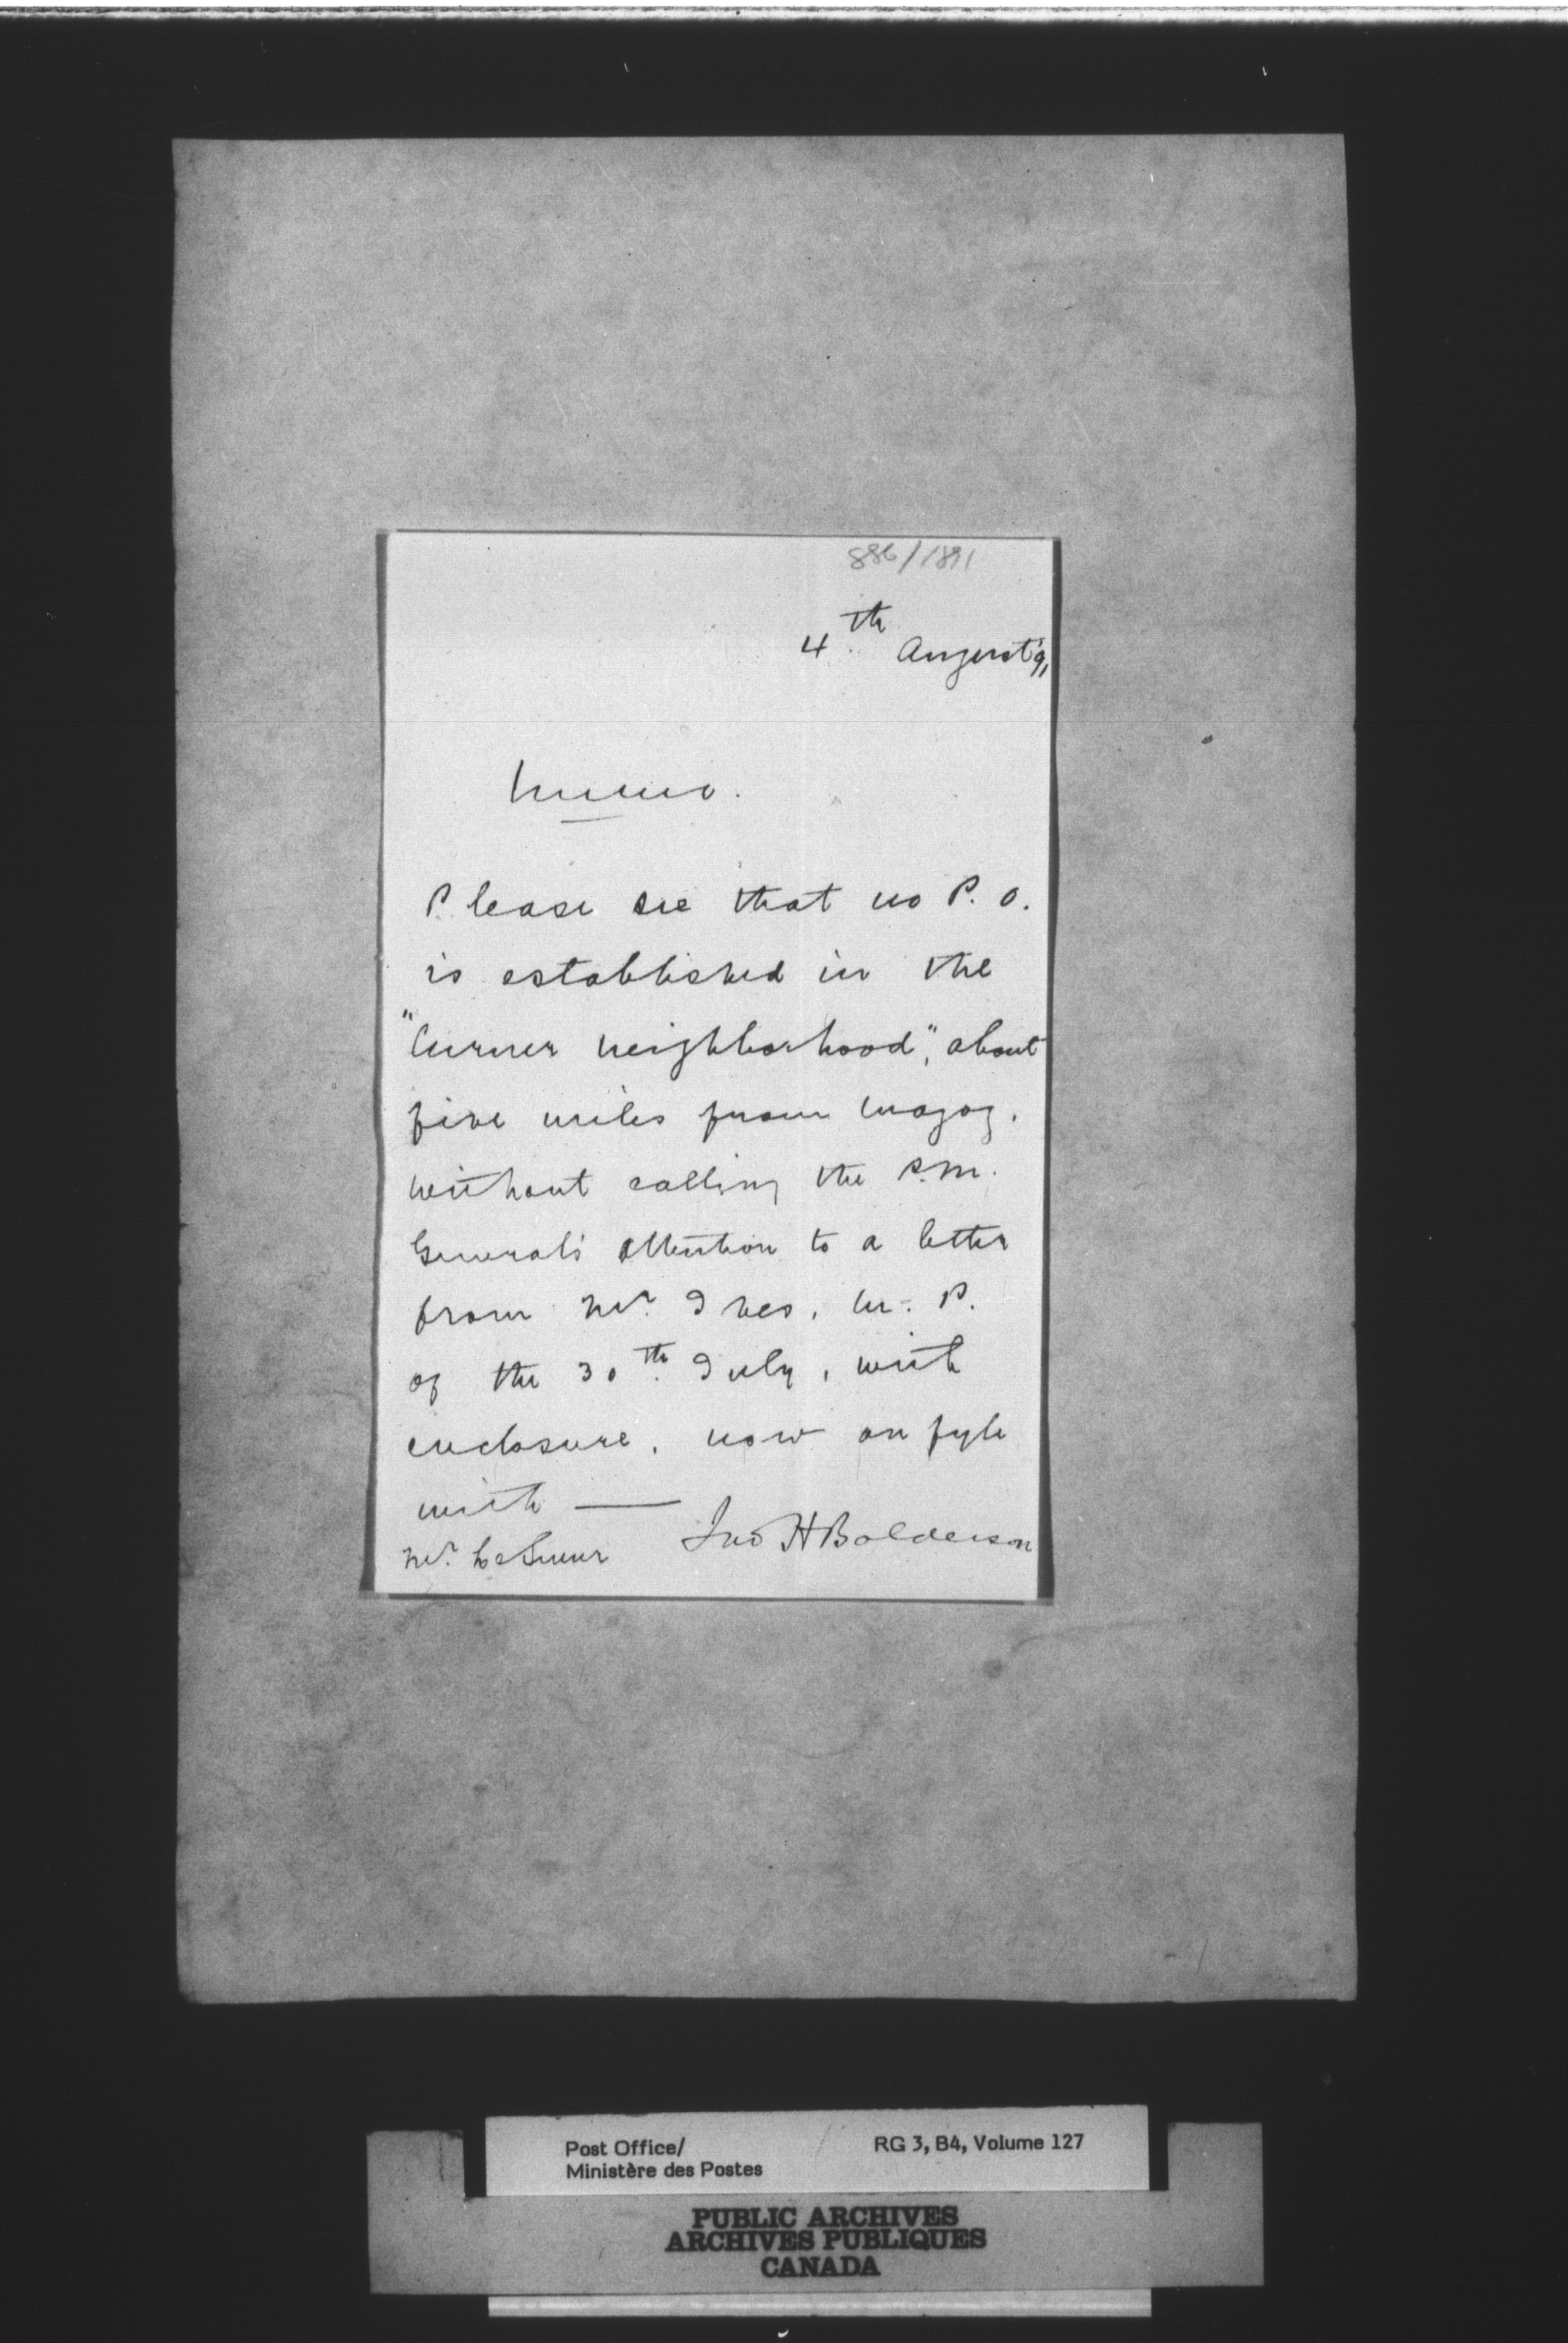 886/1891
4th August '91
Memo.
Please see that no P.O.
is established in the
"Turner neighborhood", about
five miles from Magog,
without calling the P.M.
General's attention to a letter
from Mr. Ives, M.P.
of the 30th July, with
enclosure, now on fyle
with —
Jno H Balderson
Mr. LeSueur
Post Office/
Ministère des Postes
RG 3, B4, Volume 127
PUBLIC ARCHIVES
ARCHIVES PUBLIQUES
CANADA